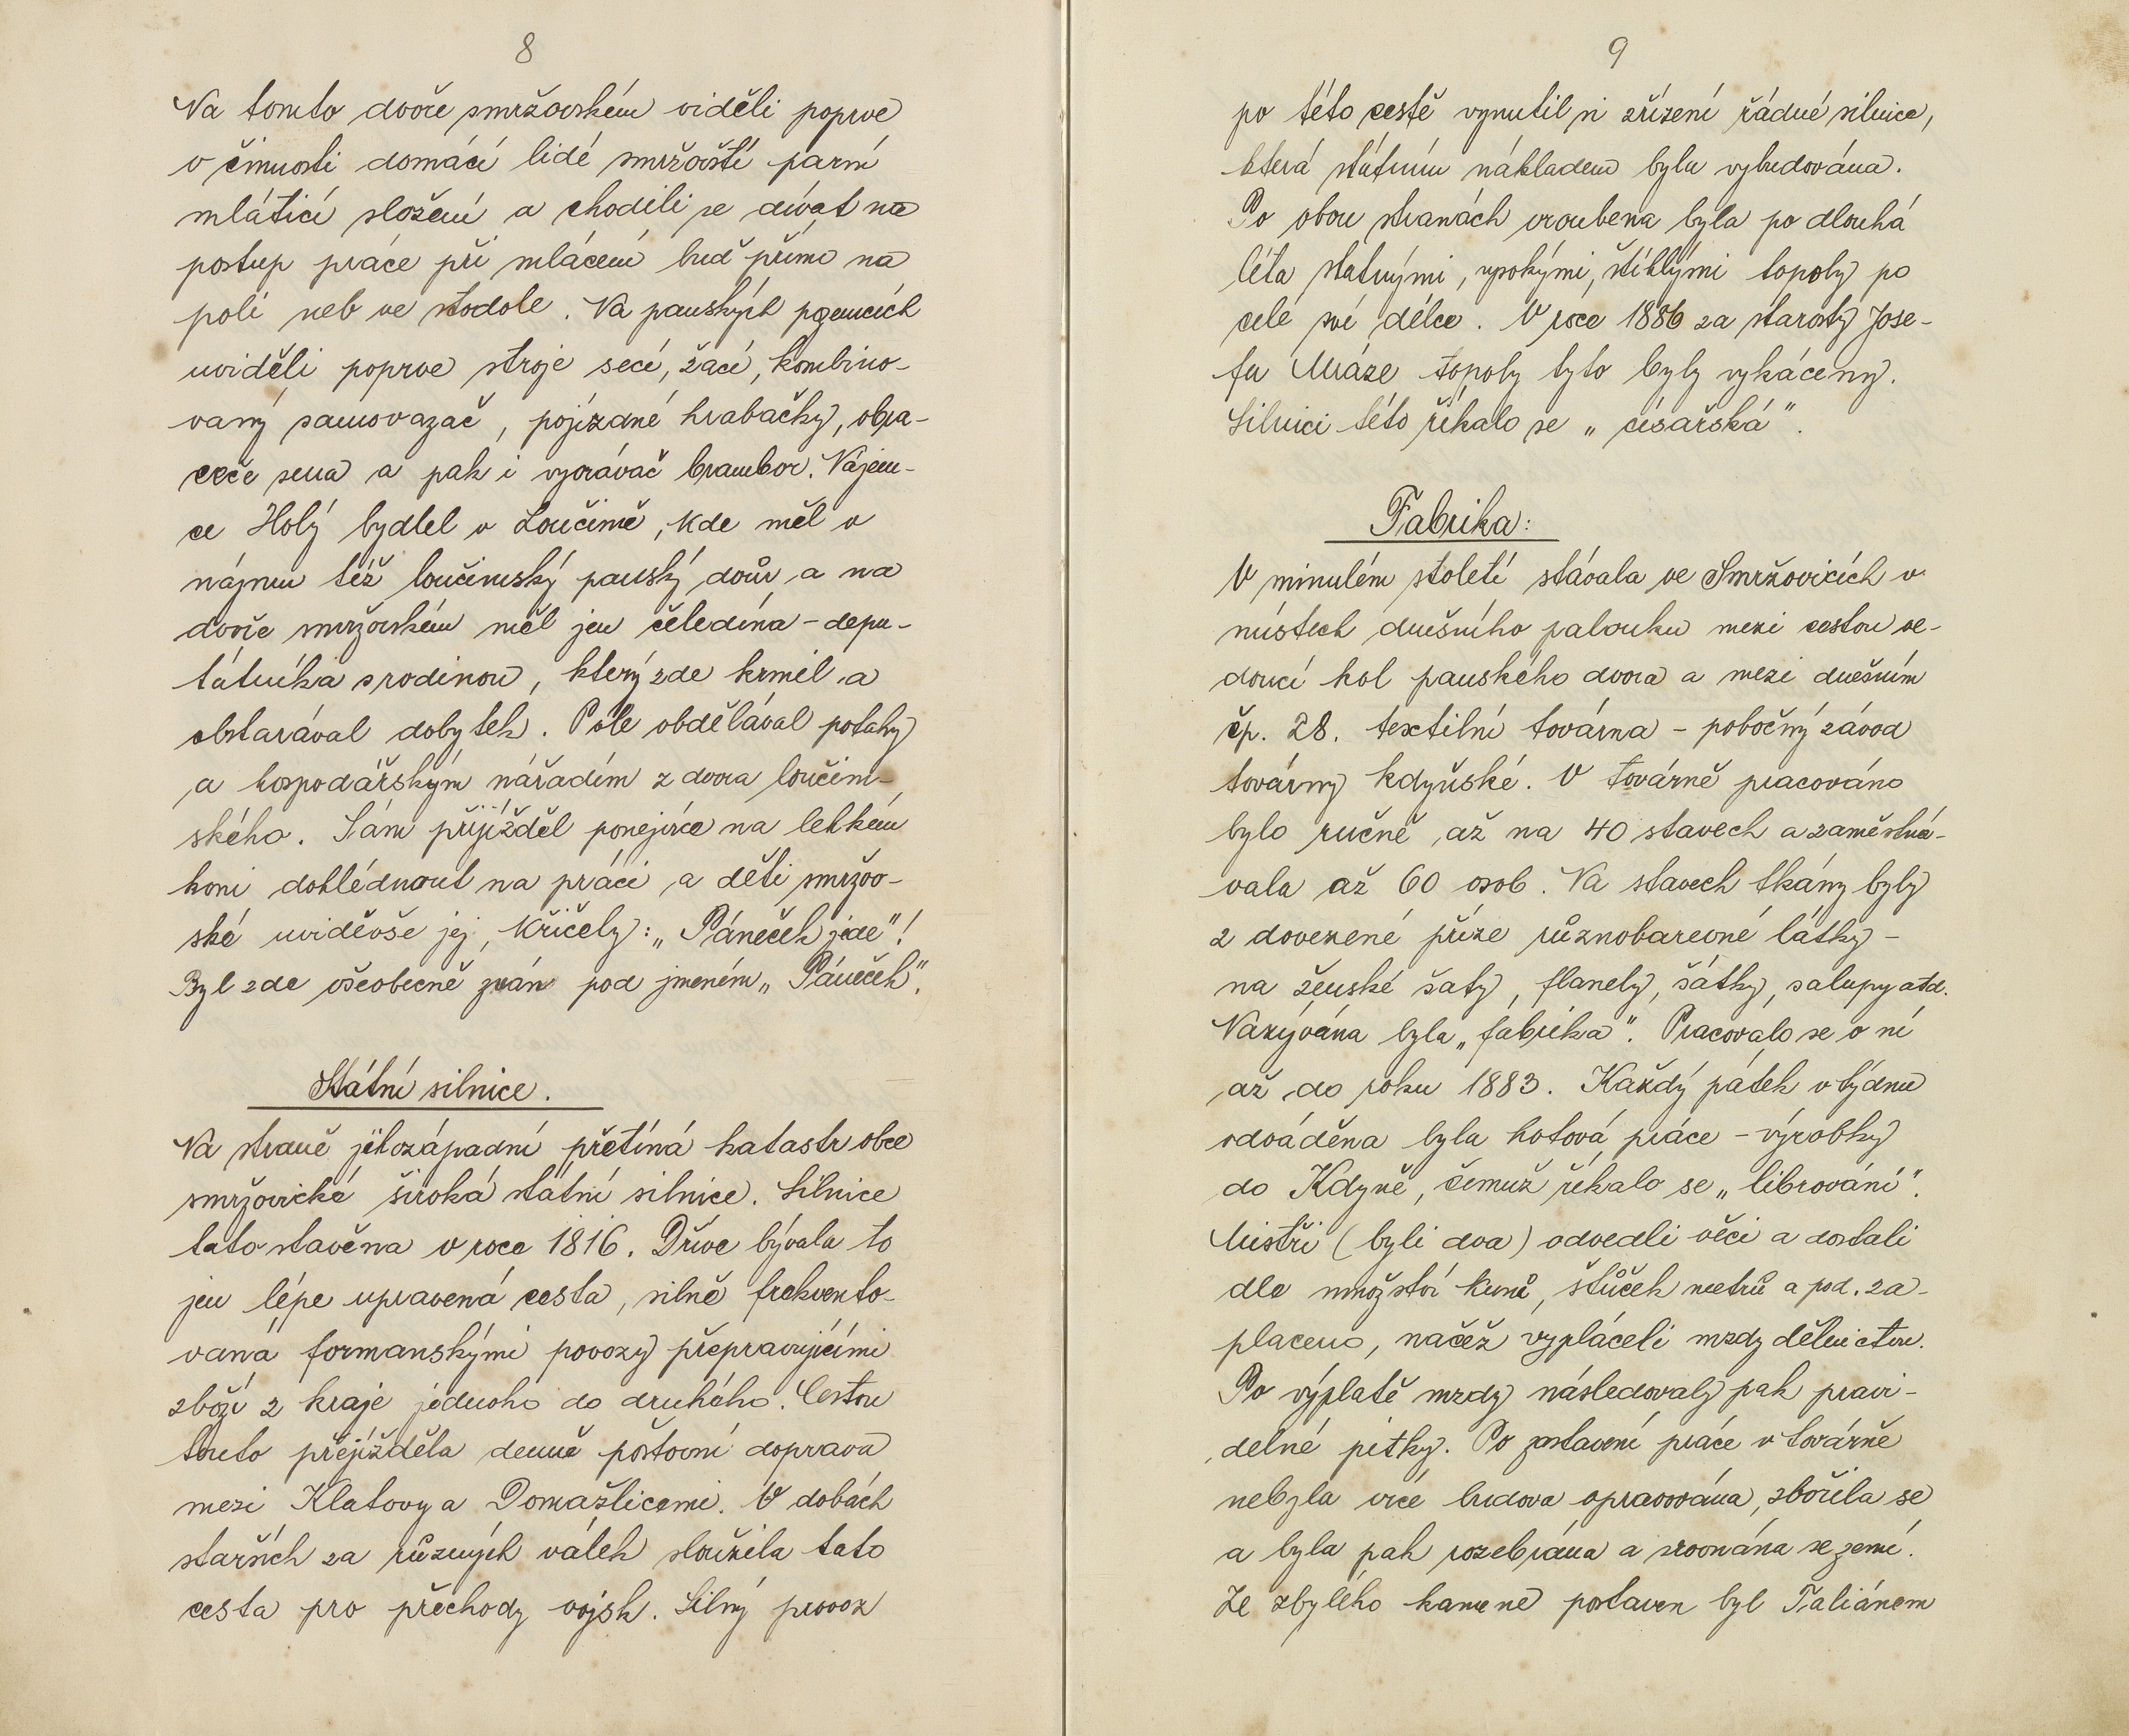 8
Na tomto dvoře smržovském viděli poprve
v činnosti domácí lidé smržovští parní
mlátící složení a chodili se dívat na
postup práce při mlácení buď přímo na
poli neb ve stodole. Na panských pozemcích
uviděli poprve stroje secí, žací, kombino-
vaný samovazač, pojízdné hrabačky, obra-
ceče sena a pak i vyorávač brambor. Nájem-
ce Holý bydlel v Loučimě, kde měl v
nájmu též loučimský panský dvůr a na
dvoře smržovském měl jen čeledína - depu-
tátníka s rodinou, který zde krmil a
obstarával dobytek. Pole obdělával potahy
a hospodářským nářadím z dvora loučim-
ského. Sám přijížděl ponejvíce na lehkém
koni dohlédnout na práci a děti smržov-
ské uviděvše jej, křičely: „Páneček jede"!
Byl zde všeobecně znán pod jménem „Páneček".
Státní silnice.
Na straně jihozápadní přetíná katastr obce
smržovické široká státní silnice. Silnice
tato stavěna v roce 1816. Dříve bývala to
jen lépe upravená cesta, silně frekvento-
vaná formanskými povozy přepravujícími
zboží z kraje jednoho do druhého. Cestou
touto přejížděla denně poštovní doprava
mezi Klatovy a Domažlicemi. V dobách
starších za různých válek sloužila tato
cesta pro přechody vojsk. Silný provoz
9
po této cestě vynutil si zřízení řádné silnice,
která státním nákladem byla vybudována.
Po obou stranách vroubena byla po dlouhá
léta statnými, vysokými, štíhlými topoly po
celé své délce. V roce 1886 za starosty Jose-
fa Mráze topoly tyto byly vykáceny.
Silnici této říkalo se „císařská".
Fabrika:
V minulém století stávala ve Smržovicích v
místech dnešního palouku mezi cestou ve-
doucí kol panského dvora a mezi dnešním
čp. 28. textilní továrna - pobočný závod
továrny kdyňské. V továrně pracováno
bylo ručně až na 40 stavech a zaměstná-
vala až 60 osob. Na stavech tkány byly
z dovezené příze různobarevné látky -
na ženské šaty, flanely, šátky, salupy atd.
Nazývána byla „fabrika". Pracovalo se v ní
až do roku 1883. Každý pátek v týdnu
odváděna byla hotová práce - výrobky
do Kdyně, čemuž říkalo se „librování".
Mistři (byli dva) odvedli věci a dostali
dle množství kusů, štůček metrů a pod. za-
placeno, načež vypláceli mzdy dělnictvu.
Po výplatě mzdy následovaly pak pravi-
delné pitky. Po zastavení práce v továrně
nebyla více budova opravována, zbořila se
a byla pak rozebrána a srovnána se zemí.
Ze zbylého kamene postaven byl Taliánem